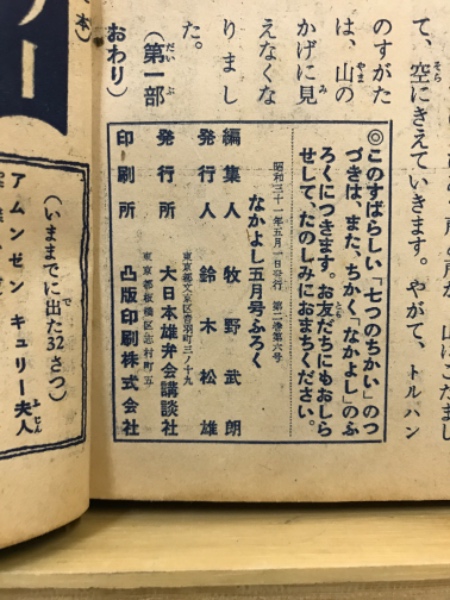 て、空にきえていきます。やがて、トルハン
のすがた
は、山の
かげに見
えなくな
りまし
た。
(第一部
おわり)
◎このすばらしい「七つのちかい」のつ
づきは、また、ちかく「なかよし」のふ
ろくにつきます。お友だちにもおしら
せして、たのしみにおまちください。
昭和三十一年五月一日発行 第二巻第六号
なかよし五月号ふろく
編集人 牧野武朗
発行人 鈴木松雄
東京都文京区音羽町三ノ十九
発行所 大日本雄弁会講談社
東京都板橋区志村町五
印刷所 凸版印刷株式会社
(いままでに出た32さつ)
アムンゼン キュリー夫人